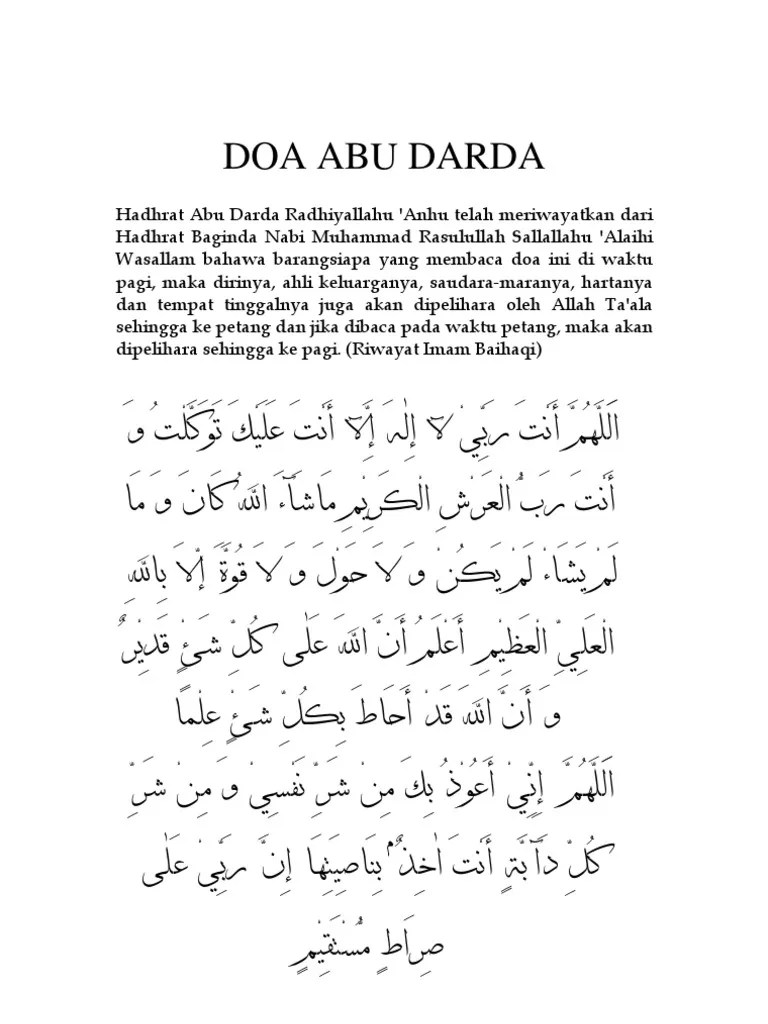 DOA ABU DARDA
Hadhrat Abu Darda Radhiyallahu 'Anhu telah meriwayatkan dari
Hadhrat Baginda Nabi Muhammad Rasulullah Sallallahu 'Alaihi
Wasallam bahawa barangsiapa yang membaca doa ini di waktu
pagi, maka dirinya, ahli keluarganya, saudara-maranya, hartanya
dan tempat tinggalnya juga akan dipelihara oleh Allah Ta'ala
sehingga ke petang dan jika dibaca pada waktu petang, maka akan
dipelihara sehingga ke pagi. (Riwayat Imam Baihaqi)
اَللَّهُمَّ أَنْتَ رَبِّيْ لَا إِلٰهَ إِلَّا أَنْتَ عَلَيْكَ تَوَكَّلْتُ وَ
أَنْتَ رَبُّ الْعَرْشِ الْكَرِيْمِ مَاشَآءَ اللهُ كَانَ وَ مَا
لَمْ يَشَاءْ لَمْ يَكُنْ وَ لَا حَوْلَ وَ لَا قُوَّةَ إِلَّا بِاللهِ
الْعَلِيِّ الْعَظِيْمِ أَعْلَمُ أَنَّ اللهَ عَلٰى كُلِّ شَئْءٍ قَدِيْرٌ
وَ أَنَّ اللهَ قَدْ أَحَاطَ بِكُلِّ شَئْءٍ عِلْمًا
اَللَّهُمَّ إِنِّيْ أَعُوْذُ بِكَ مِنْ شَرِّ نَفْسِيْ وَ مِنْ شَرِّ
كُلِّ دَآبَّةٍ أَنْتَ اٰخِذٌۢ بِنَاصِيَتِهَا إِنَّ رَبِّيْ عَلٰى
صِرَاطٍ مُّسْتَقِيْمٍ